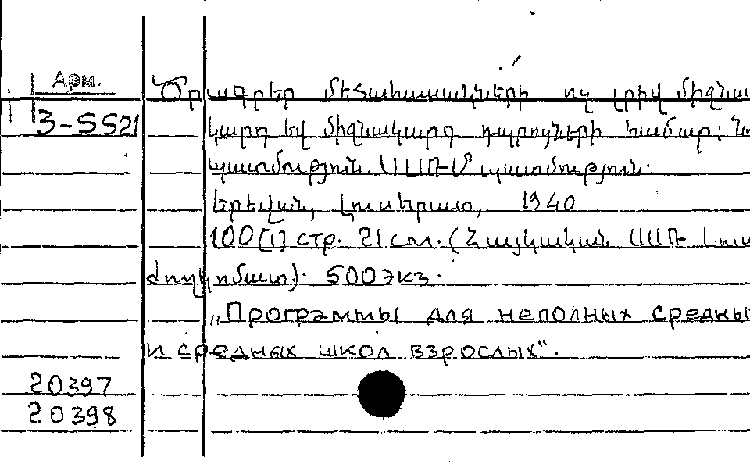 Арм.
3-5521
Ծրագրեր մեծահասակների ոչ լրիվ միջնա
կարգ եվ միջնակարգ դպրոցների համար: Նո
պատմություն ՍՍՌՄ պատմություն.
Երեվան, Լուսհրատ, 1940
100[1] стр. 21 см. (Հայկական ՍՍՌ Լուս
ժողկոմատ). 500 экз.
„Программы для неполных средны
и средних школ взрослых".
20397
20398